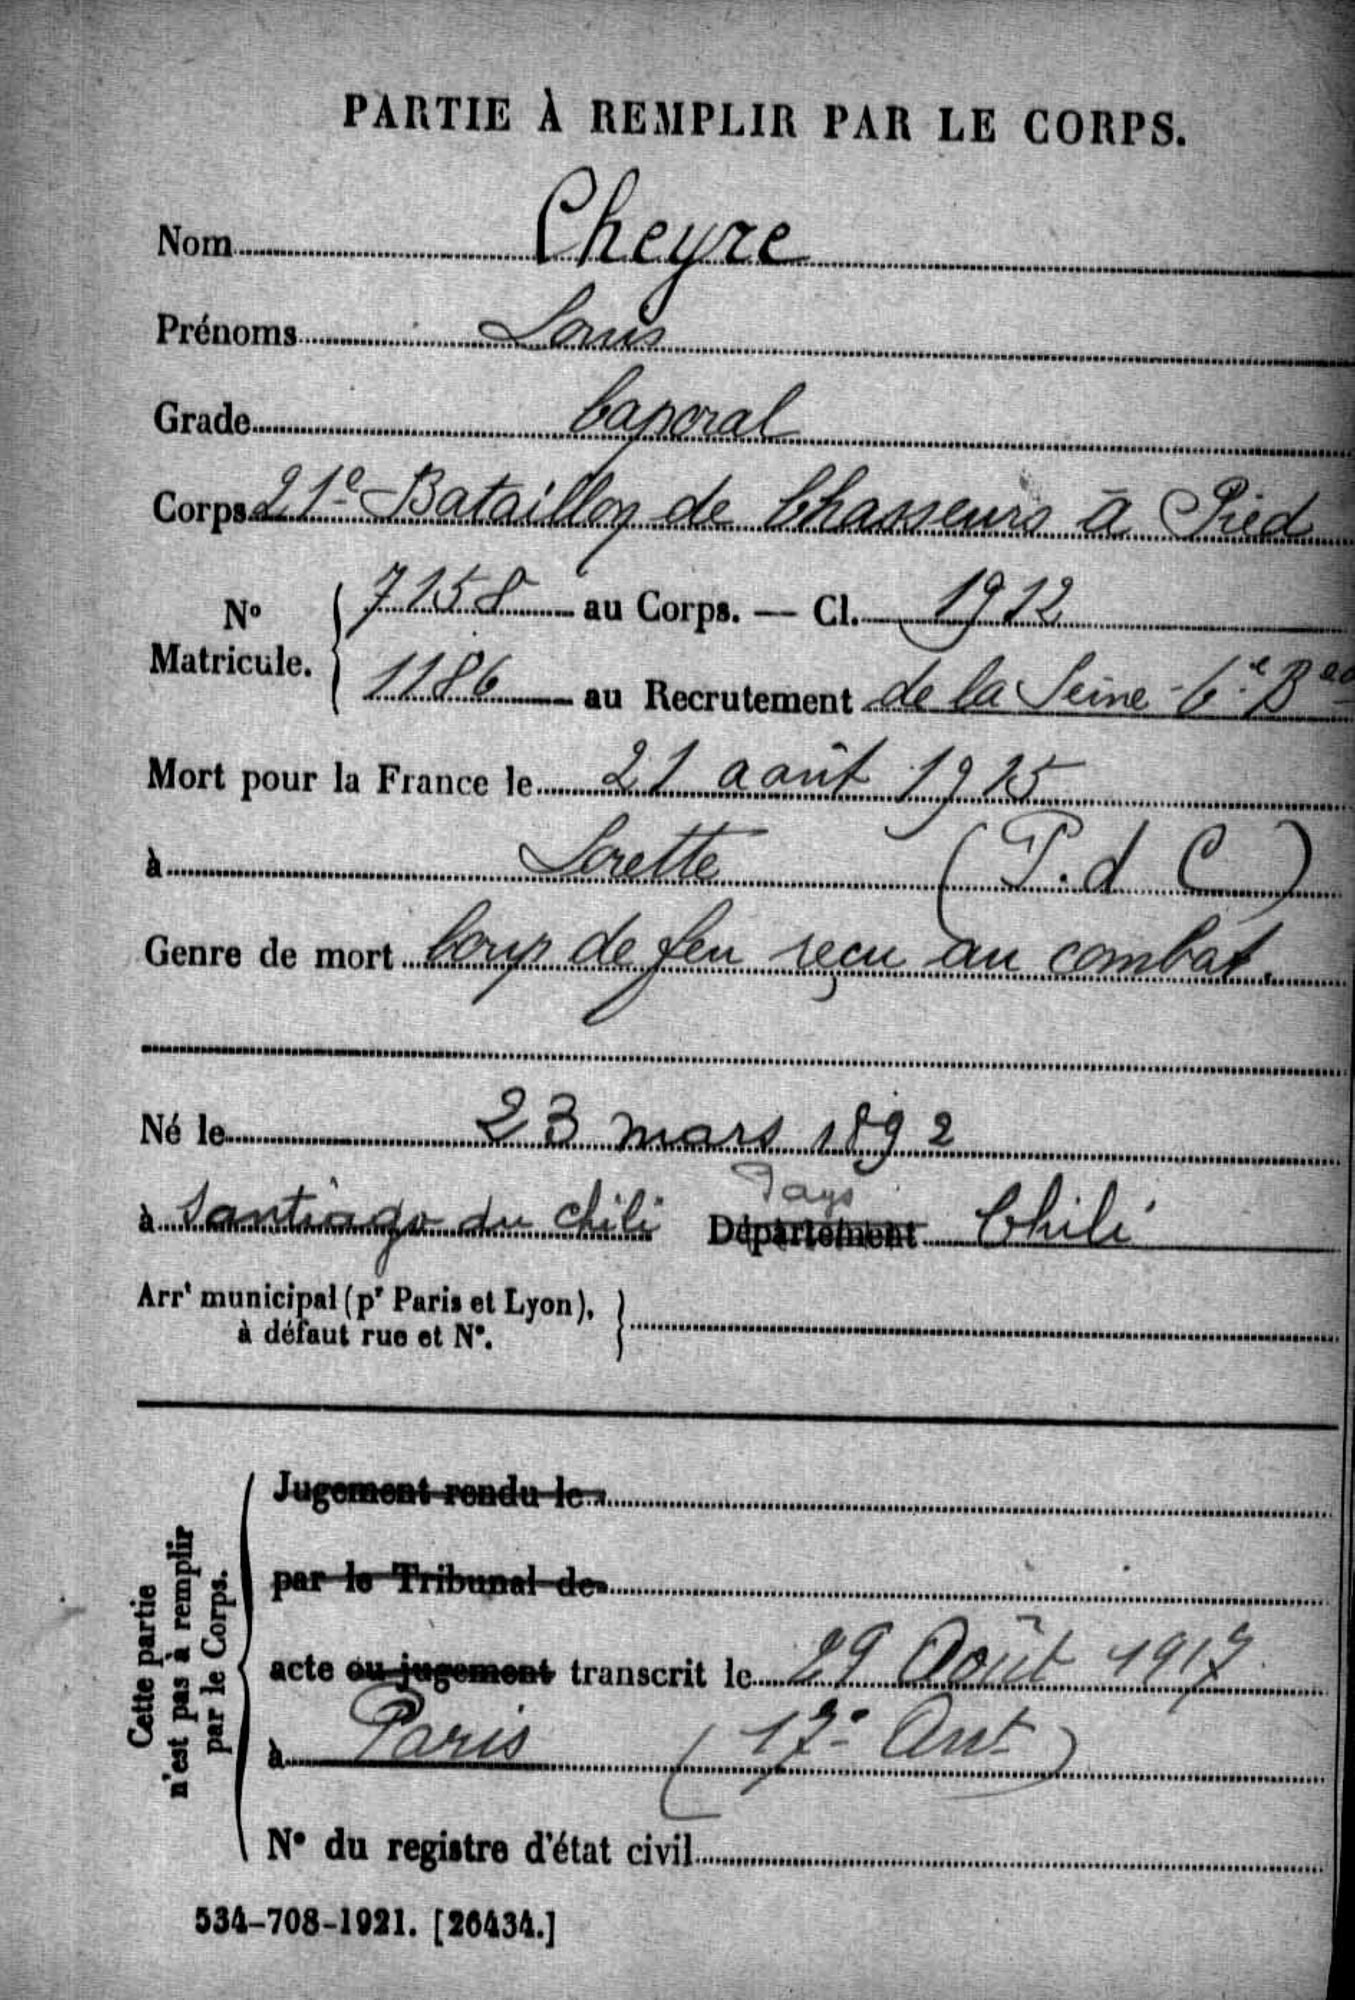 PARTIE À REMPLIR PAR LE CORPS.
Nom Cheyre
Prénoms Louis
Grade Caporal
Corps 21e Bataillon de Chasseurs à Pied
No Matricule. 7158 au Corps. — Cl. 1912
1186 au Recrutement de la Seine - 6e Bau
Mort pour la France le 21 août 1915
à Lorette (P. d C)
Genre de mort Coup de feu reçu au combat.
Né le 23 mars 1892
Pays
à Santiago du chili Département Chili
Arrt municipal (pr Paris et Lyon),
à défaut rue et No.
Cette partie
n'est pas à remplir
par le Corps.
Jugement rendu le
par le Tribunal de
acte ou jugement transcrit le 29 Août 1917
à Paris (17e Arrt)
No du registre d'état civil
534-708-1921. [26434.]